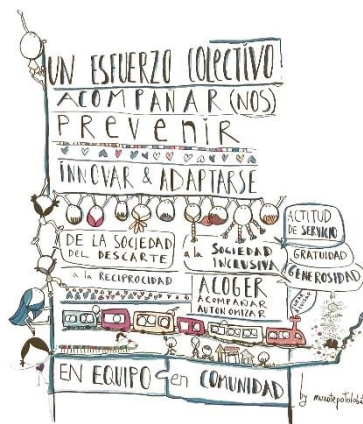 UN ESFUERZO COLECTIVO
ACOMPAÑAR(NOS)
PREVENIR
INNOVAR & ADAPTARSE
DE LA SOCIEDAD
DEL DESCARTE
a la SOCIEDAD
INCLUSIVA
ACTITUD
DE SERVICIO
GRATUIDAD
GENEROSIDAD
a la RECIPROCIDAD
ACOGER
ACOMPAÑAR
AUTONOMIZAR
EN EQUIPO
en COMUNIDAD
by